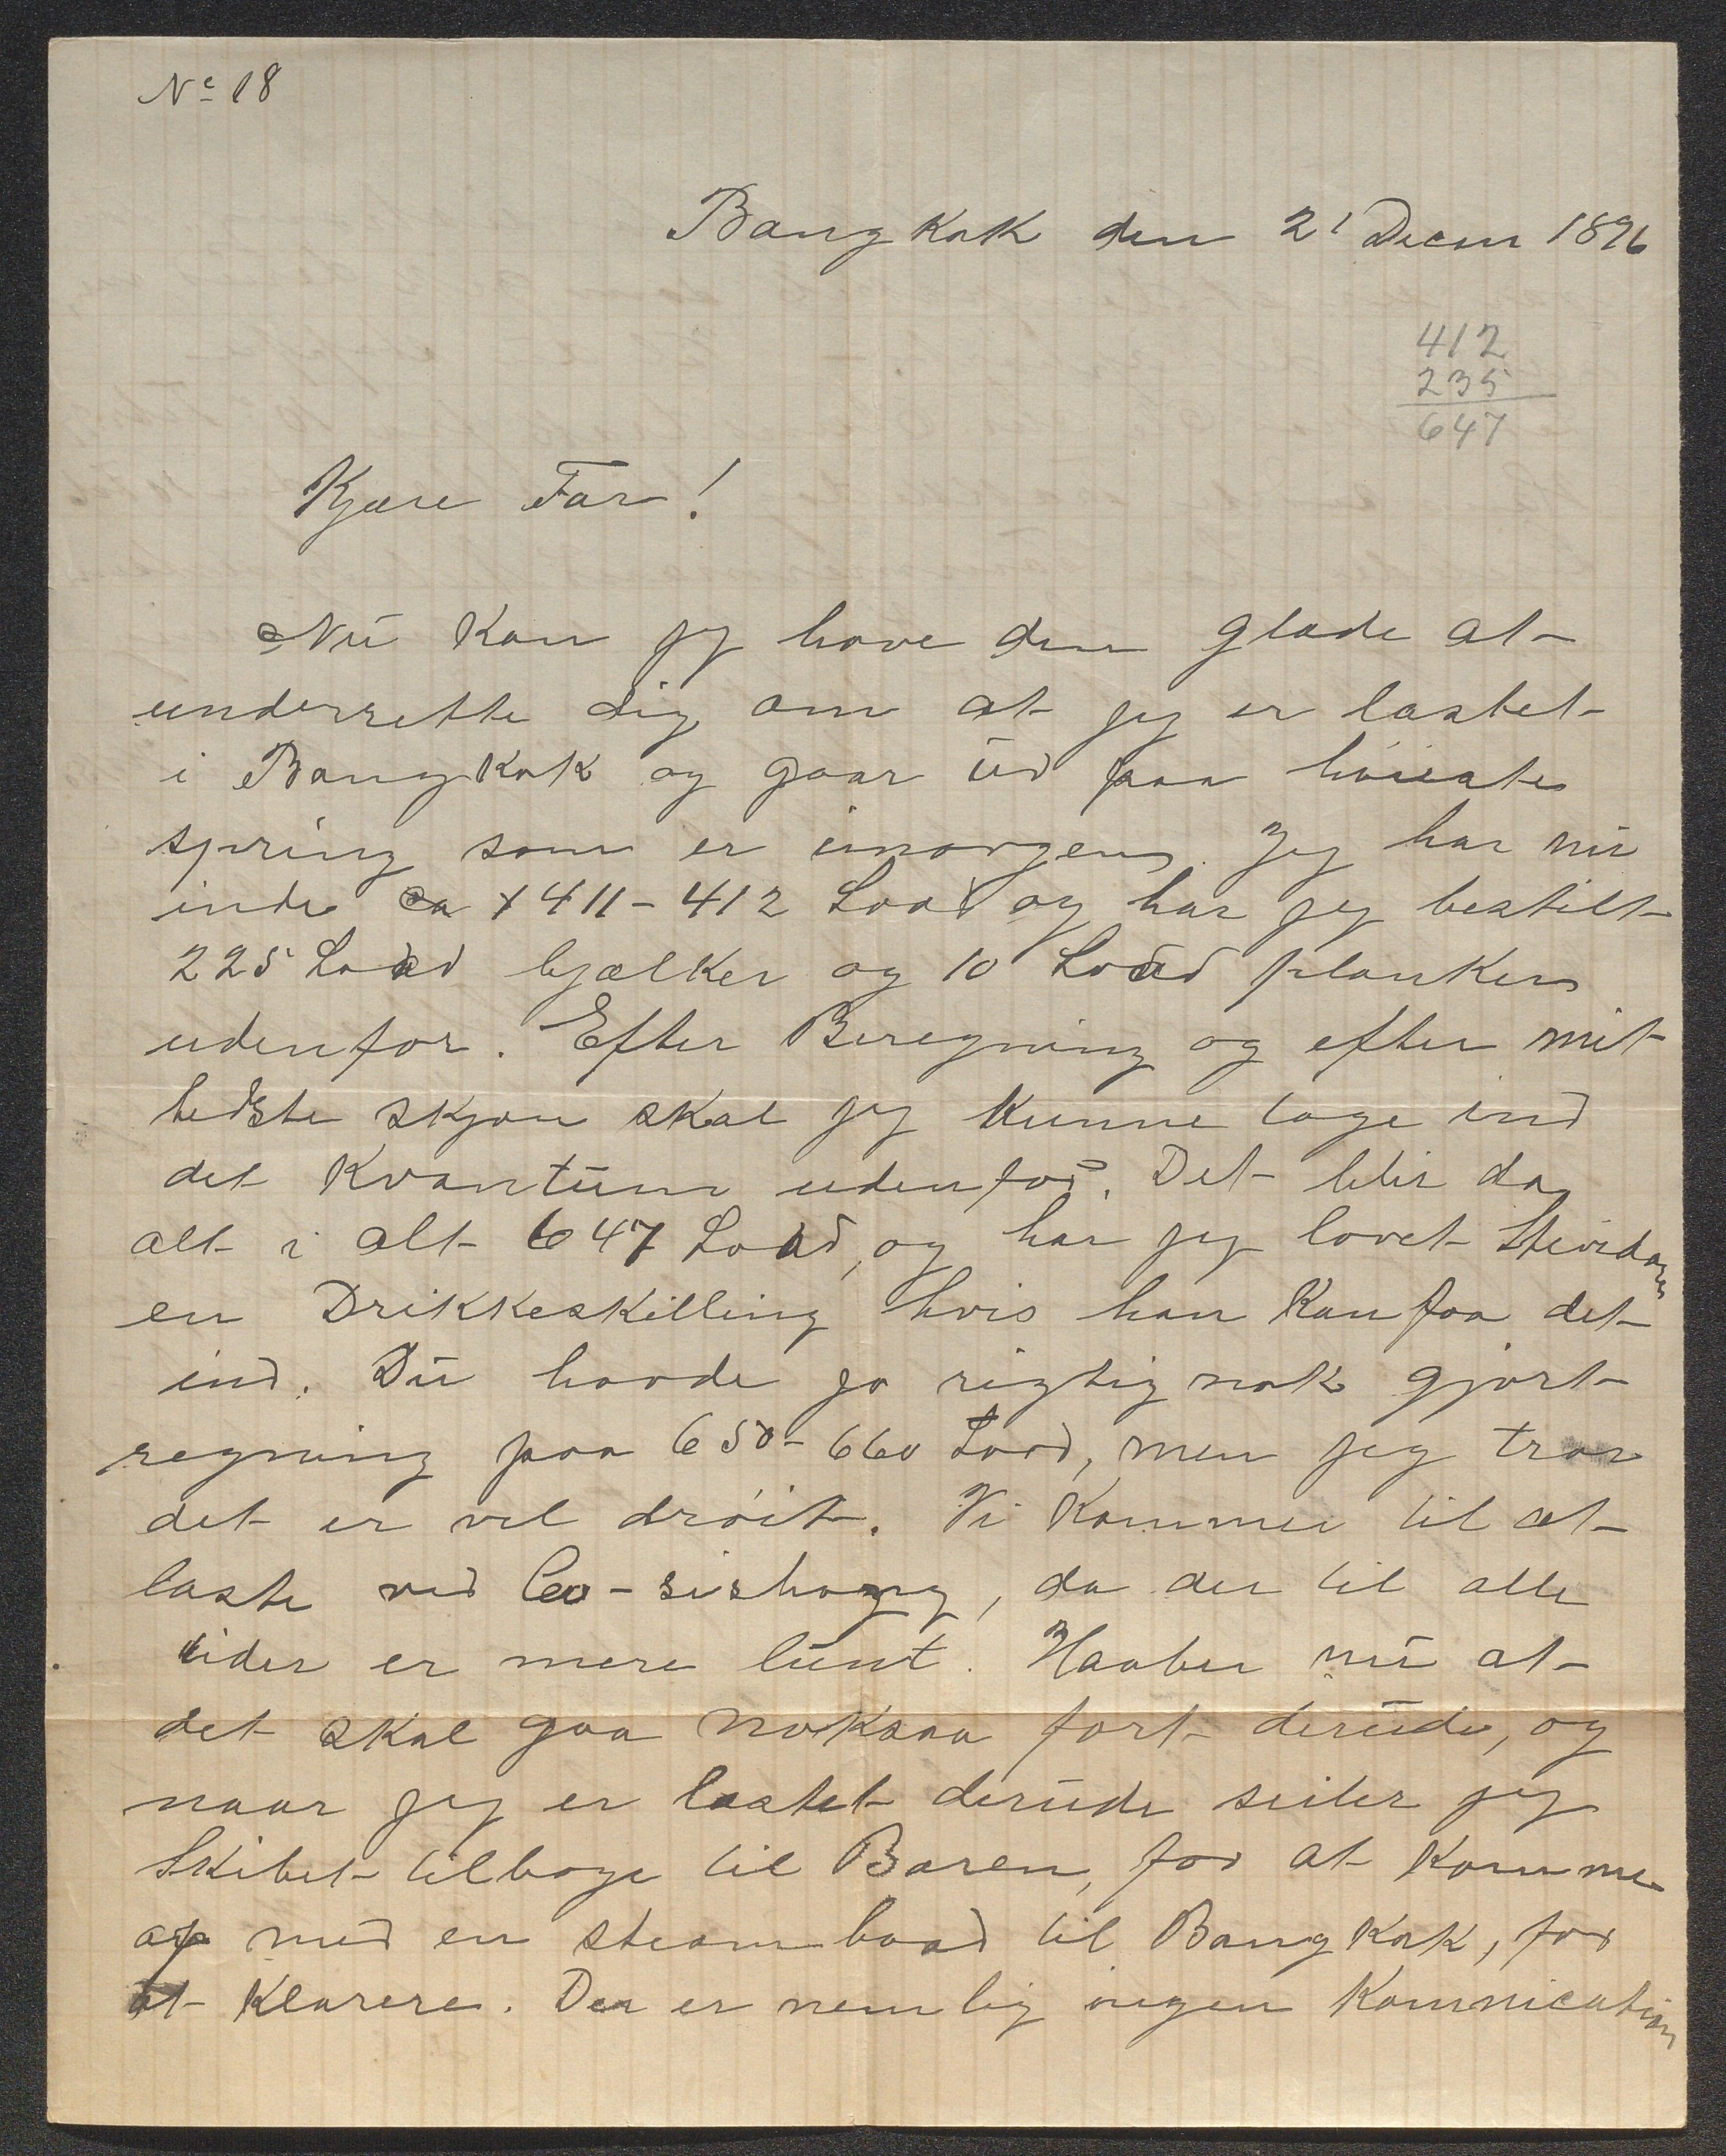 No 18
Bangkok den 21 Decm 1896
412
235
647
Kjære Far!
Nu kan jeg have den glæde at
underrette dig om at jeg er lastet
i Bangkok og gaar ud paa høieste
spring som er imorgen. Jeg har nu
inde ca 411-412 Load og har jeg bestilt
225 Load bjælker og 10 Load planker
udenfor. Efter Beregning og efter mit
bedste skjøn skal jeg kunne tage ind
det Kvantum udenfor. Det blir da
alt i alt 647 Load, og har jeg lovet Stevidoren
en Drikkeskilling hvis han kan faa det
ind. Du havde jo rigtignok gjort
regning paa 650-660 Load, men jeg tror
det er vel drøit. Vi kommer til at
laste ved Co-sishang, da der til alle
tider er mere lunt. Haaber nu at
det skal gaa noksaa fort derude, og
naar jeg er lastet derude seiler jeg
Skibet tilbage til Baren, for at komme
op med en steambaad til Bangkok, for
at Klarere. Der er nemlig ingen Komnication